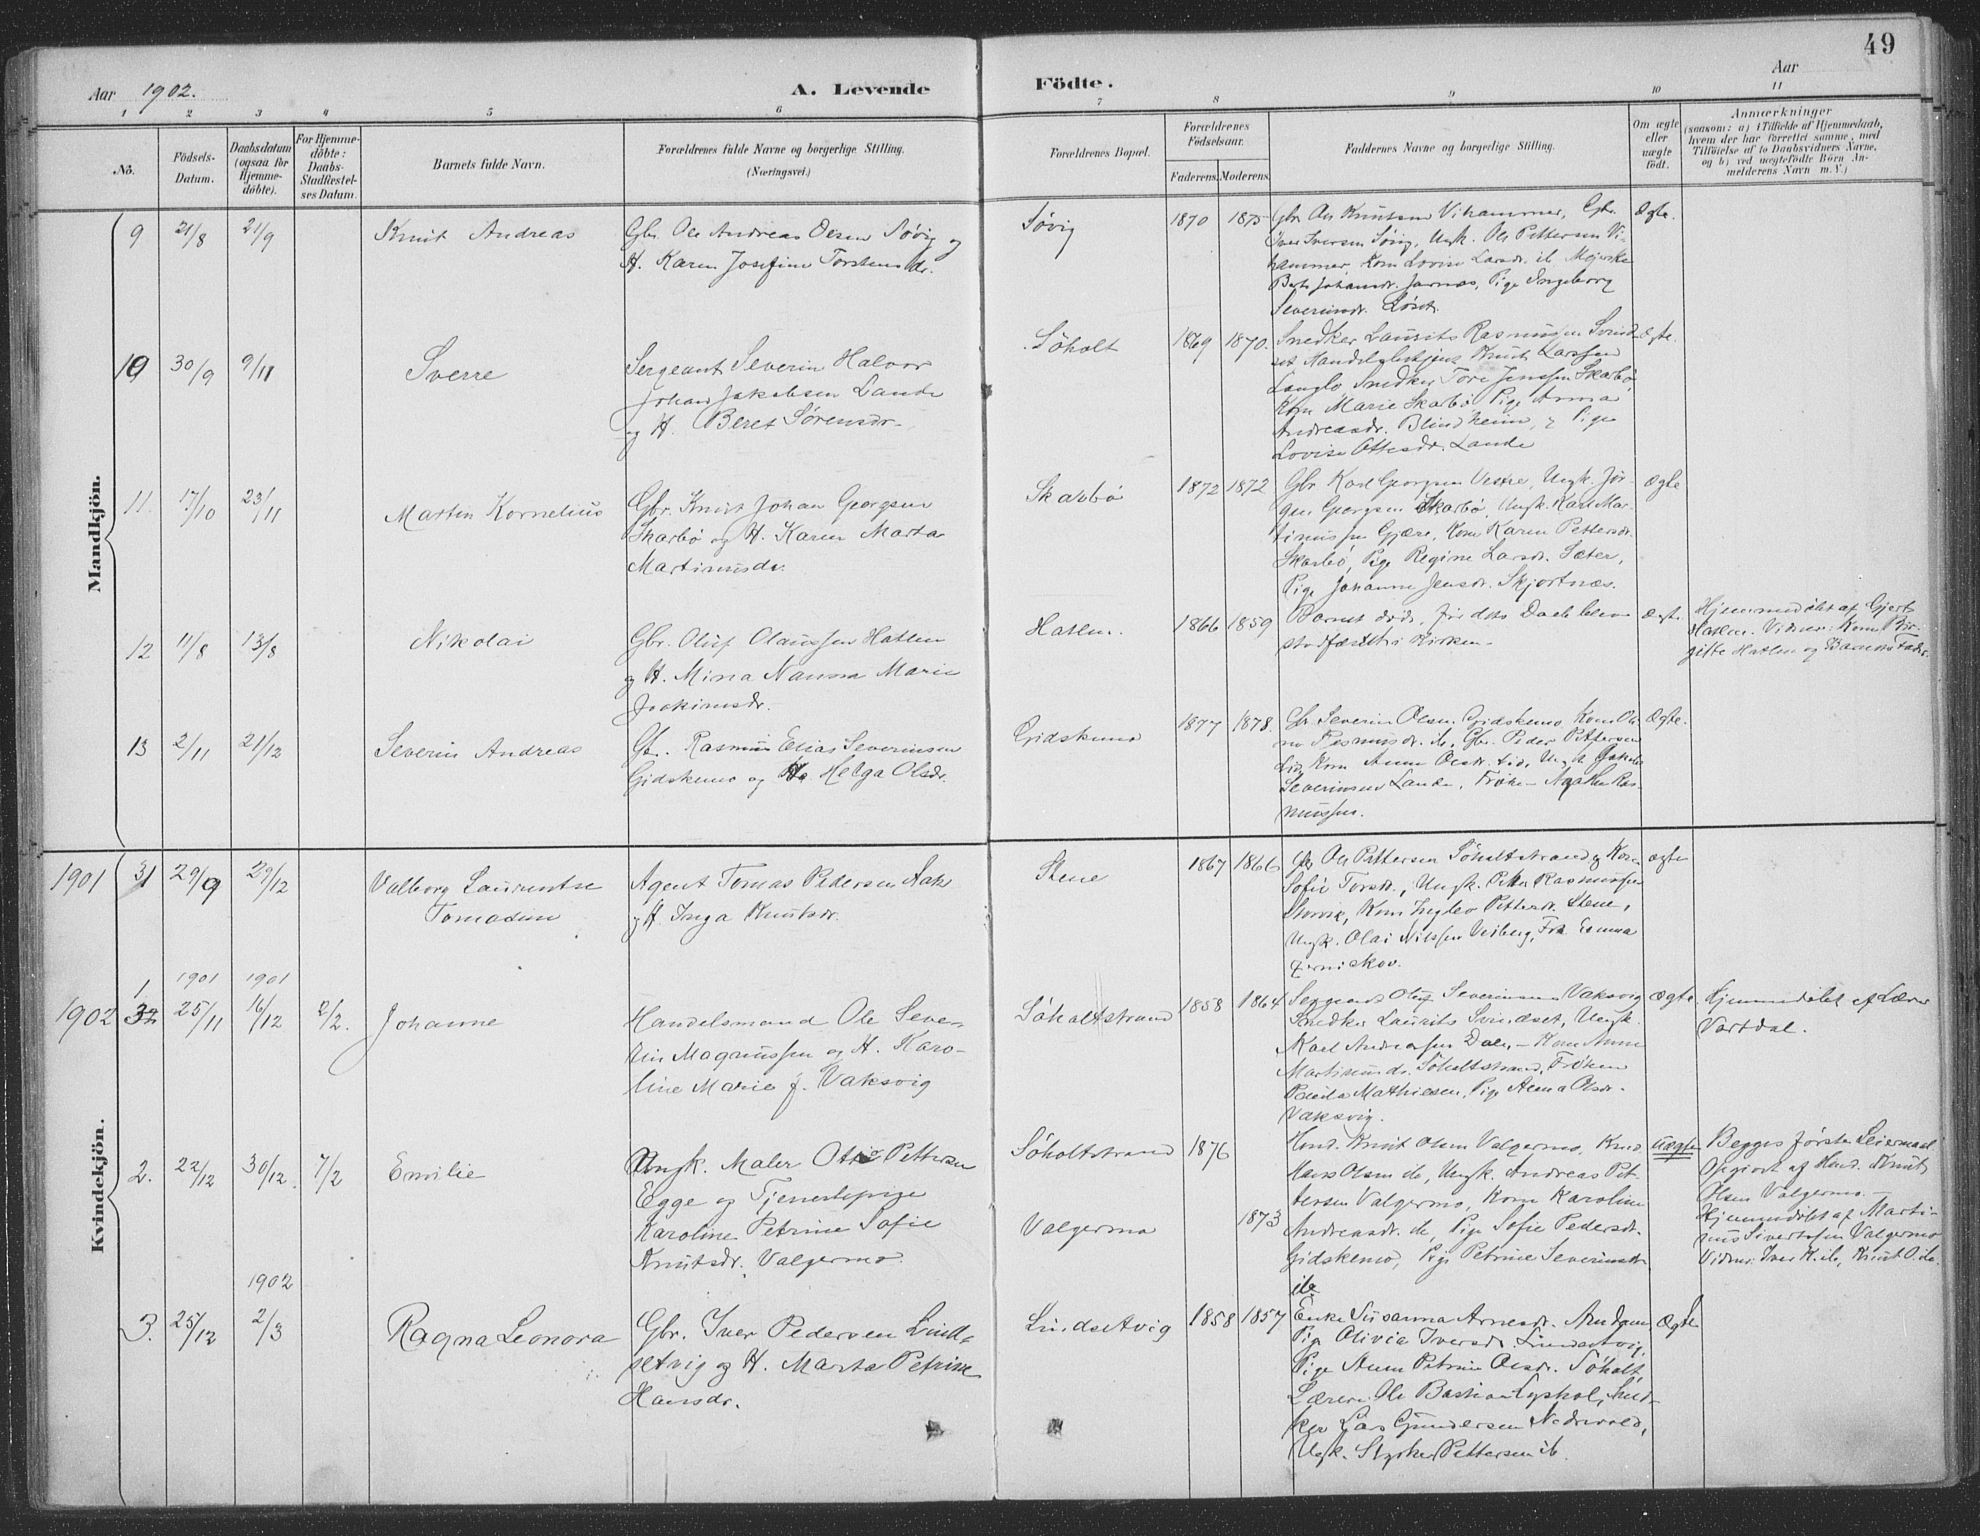 49
Aar 1902. A. Levende Födte. Aar
1 2 3 4 5 6 7 8 9 10 11
No. Födsels-Datum. Daabsdatum (ogsaa for Hjemme-döbte). For Hjemme-döbte: Daabs-Stadfæstel-ses Datum. Barnets fulde Navn. Forældrenes fulde Navne og borgerlige Stilling. (Næringsvei.) Forældrenes Bopæl. Forældrenes Födselsaar. Faderens. Moderens. Faddernes Navne og borgerlige Stilling. Om ægte eller uægte födt. Anmærkninger
(saasom: a) i Tilfælde af Hjemmedaab,
hvem der har forrettet samme, med
Tilföielse af to Daabsvidners Navne,
og b) ved uægtefödte Börn An-
melderens Navn m. V.)
Mandkjön.
9 21/8 21/9 Knut Andreas
Gbr. Ole Andreas Olsen Søvig og
H. Karen Josefine Torstensdr.
Søvig 1870 1875
Gbr. Ole Knutsen Vihammer, Gbr.
Iver Iversen Søvig, Ungk. Ole Pettersen Vi-
hammer, Kone Lovise Larsdr. ib Mejerske
Berte Johansdr. Jarnes, Pige Ingeborg
Severinsdr. Løset.
Ægte.
10 30/9 9/11 Sverre
Sergeant Severin Halvor
Johan Jakobsen Lande
og H. Beret Sørensdr.
Søholt 1869 1870.
Snedker Laurits Rasmussen Svind-
set Handelsbetjent Knut Larssen
Langlo, Snedker Tore Jenssen Skarbø,
Kone Marie Skarbø Pige Anna
Andreasdr. Blindheim, & Pige
Lovise Ottesdr. Lande
ægte.
11. 17/10 23/11 Martin Kornelius
Gbr. Knut Johan Georgsen
Skarbø og H. Karen Marta
Martinusdr.
Skarbø 1872 1872
Gbr. Karl Georgsen Vestre, Ungk. Jør-
gen Georgsen Skarbø, Ungk. Karl Mar-
tinussen Gjære, Kone Karen Pettersdr.
Skarbø, Pige Regine Larsdr. Sæter,
Pige Johanne Jensdr. Skjortnæs.
Ægte
12 11/8 13/8 Nikolai
Gbr. Oluf Olaussen Hatlen
og H. Mina Nanna Marie
Joakimsdr.
Hatlen. 1866 1859
Barnet døde, før dets Daab blev
stadfæstet i Kirken.
Ægte.
Hjemmedøbt af Gjert
Hatlen. Vidner: Kone Bir-
gitte Hatlen og Barnets Fader.
13 2/11 21/12 Severin Andreas
Gbr. Rasmus Elias Severinsen
Gidskemo og H. Helga Olsdr.
Gidskemo 1877 1878.
Gbr. Severin Olsen Gidskemo, Kone
Rasmusdr. ib, Gbr. Peder Pettersen
Lid, Kone Anne Olsdr. Lid, Ungk. Jakob
Severinsen Lande, Frøken Agathe Ras-
mussen.
Ægte.
Kvindekjön.
1901 31 29/9 29/12 Valborg Laurentse
Tomasine
Agent Tomas Pedersen Aak
og H. Inga Knutsdr.
Stene 1867 1866
Gbr. Ole Pettersen Søholtstrand og Kone
Sofie Torsdr., Ungk. Peter Rasmussen
Kone Ingebo Pettersdr. Stene,
Ungk. Olai Nilssen Viberg, Frk. Emma
ægte
1901 1901
1902 1 32 25/11 16/12 2/2. Johanne
Handelsmand Ole Seve-
rin Magnussen og H. Karo-
line Marie f. Vaksvig
Søholtstrand 1858 1864
Sergeant Oluf Severinsen Vaksvig
Snedker Laurits Svindset, Ungk.
Karl Andreassen Dale, - Kone Anne
Martinusdr. Søholtstrand, Frøken
Paula Mathiesen, Pige Anna Olsdr.
Vaksvig.
Ægte
Hjemmedøbt af Lærer
Vartdal.
2. 22/12 30/12. 7/2 Emilie
Ungk. Maler Otto Pettersen
Egge og Tjenestepige
Karoline Petrine Sofie
Knutsdr. Valgermo.
Søholtstrand 1876
Valgermo 1873
Hmd. Knut Olsen Valgermo, Kmd
Hans Olsen ib, Ungk. Andreas Pet-
tersen Valgermo, Kone Karoline
Andreasdr. ib, Pige Sofie Pedersdr.
Gidskemo, Pige Petrine Severinsdr.
ib
Uægte
Begges første Leiermaal
Opgivet af Hmd. Knut
Olsen Valgermo. -
Hjemmedøbt af Marti-
nus Sivertsen Valgermo
Vidner: Iver K. ib, Knut O. ib.
1902
3. 25/12 2/3 Ragna Leonora
Gbr. Iver Pedersen Lind-
setvig og H. Marta Petrine
Hansdr.
Lindsetvig 1858 1857
Enke Susanna Arnesdr. Amdam
Pige Olivia Iversdr. Lindsetvig,
Pige Anne Petrine Olsdr. Søholt,
Lærer Ole Bastian Lyshol, Sned-
ker Lars Gundersen Nedrevold,
Ungk. Styrker Pettersen ib.
Ægte